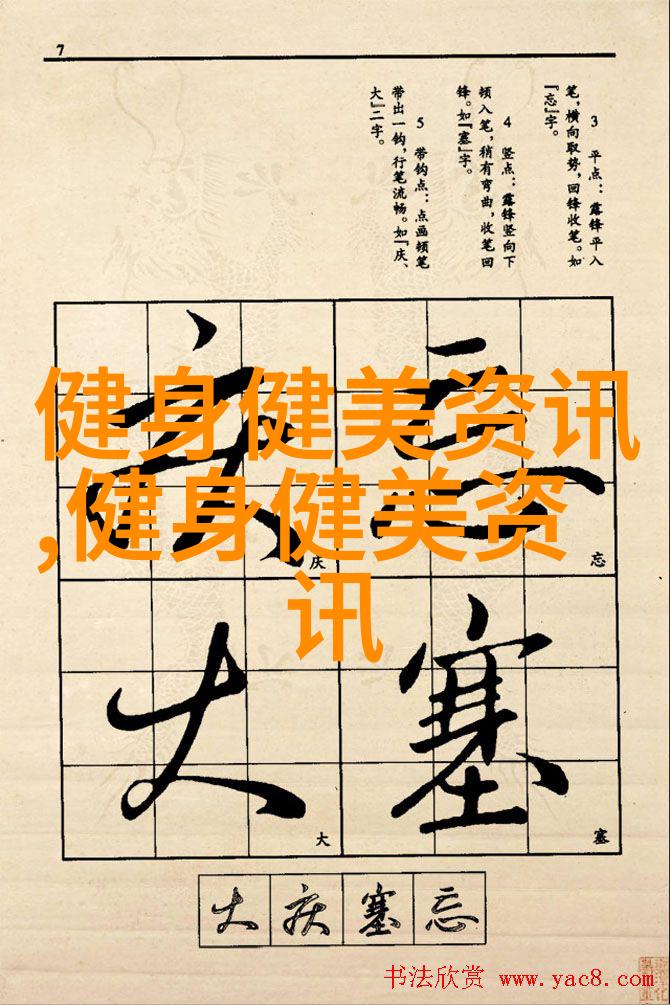 7
3 平点：露锋平入
笔，横向取势，回锋收笔。如
『忘』字。
4 竖点：露锋竖向下
顿入笔，稍有弯曲，收笔回
锋。如『塞』字。
5 带钩点：点画顿笔
带出一钩，行笔流畅。如『庆、
大』二字。
健身健美资讯
,健身健美资
讯
庆
忘
大
塞
大
塞
大庆塞忘
书法欣赏 www.yac8.com